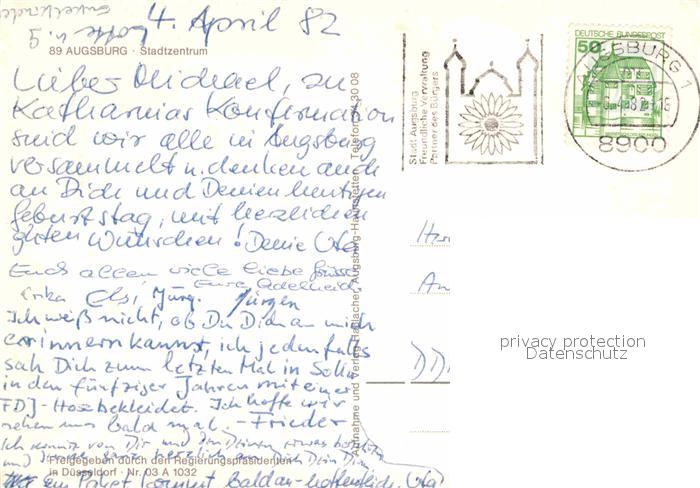 4. April 82
89 AUGSBURG · Stadtzentrum
Lieber Michael, zu
Katharinas Konfirmation
sind wir alle in Augsburg
versammelt u. denken auch
an Dich und Deinen heutigen
Geburtstag, mit herzlichen
guten Wünschen! Deine Uta
Euch allen viele liebe Grüsse
Eure Adelheid
Erika Elsi, Jürg. Jürgen
Ich weiß nicht, ob Du Dich an mich
erinnern kannst, ich jedenfalls
sah Dich zum letzten Mal in
in den fünfziger Jahren mit einer
FDJ-Hose bekleidet. Ich hoffe wir
sehen uns bald mal. - Frieder
Ich von Dir und den Deinen etwas
und
Freigegeben durch den Regierungspräsidenten
in Düsseldorf · Nr. 03 A 1032
ein Paket kommt bald an - hoffentlich. Uta
Aufnahme und Verlag Haßlacher, Augsburg-Haunstetten, Telefon 8 30 08
Stadt Augsburg
Freundliche Verwaltung
Partner des Bürgers
DEUTSCHE BUNDESPOST
50
AUGSBURG 1
8900
Her
An
DD
privacy protection
Datenschutz